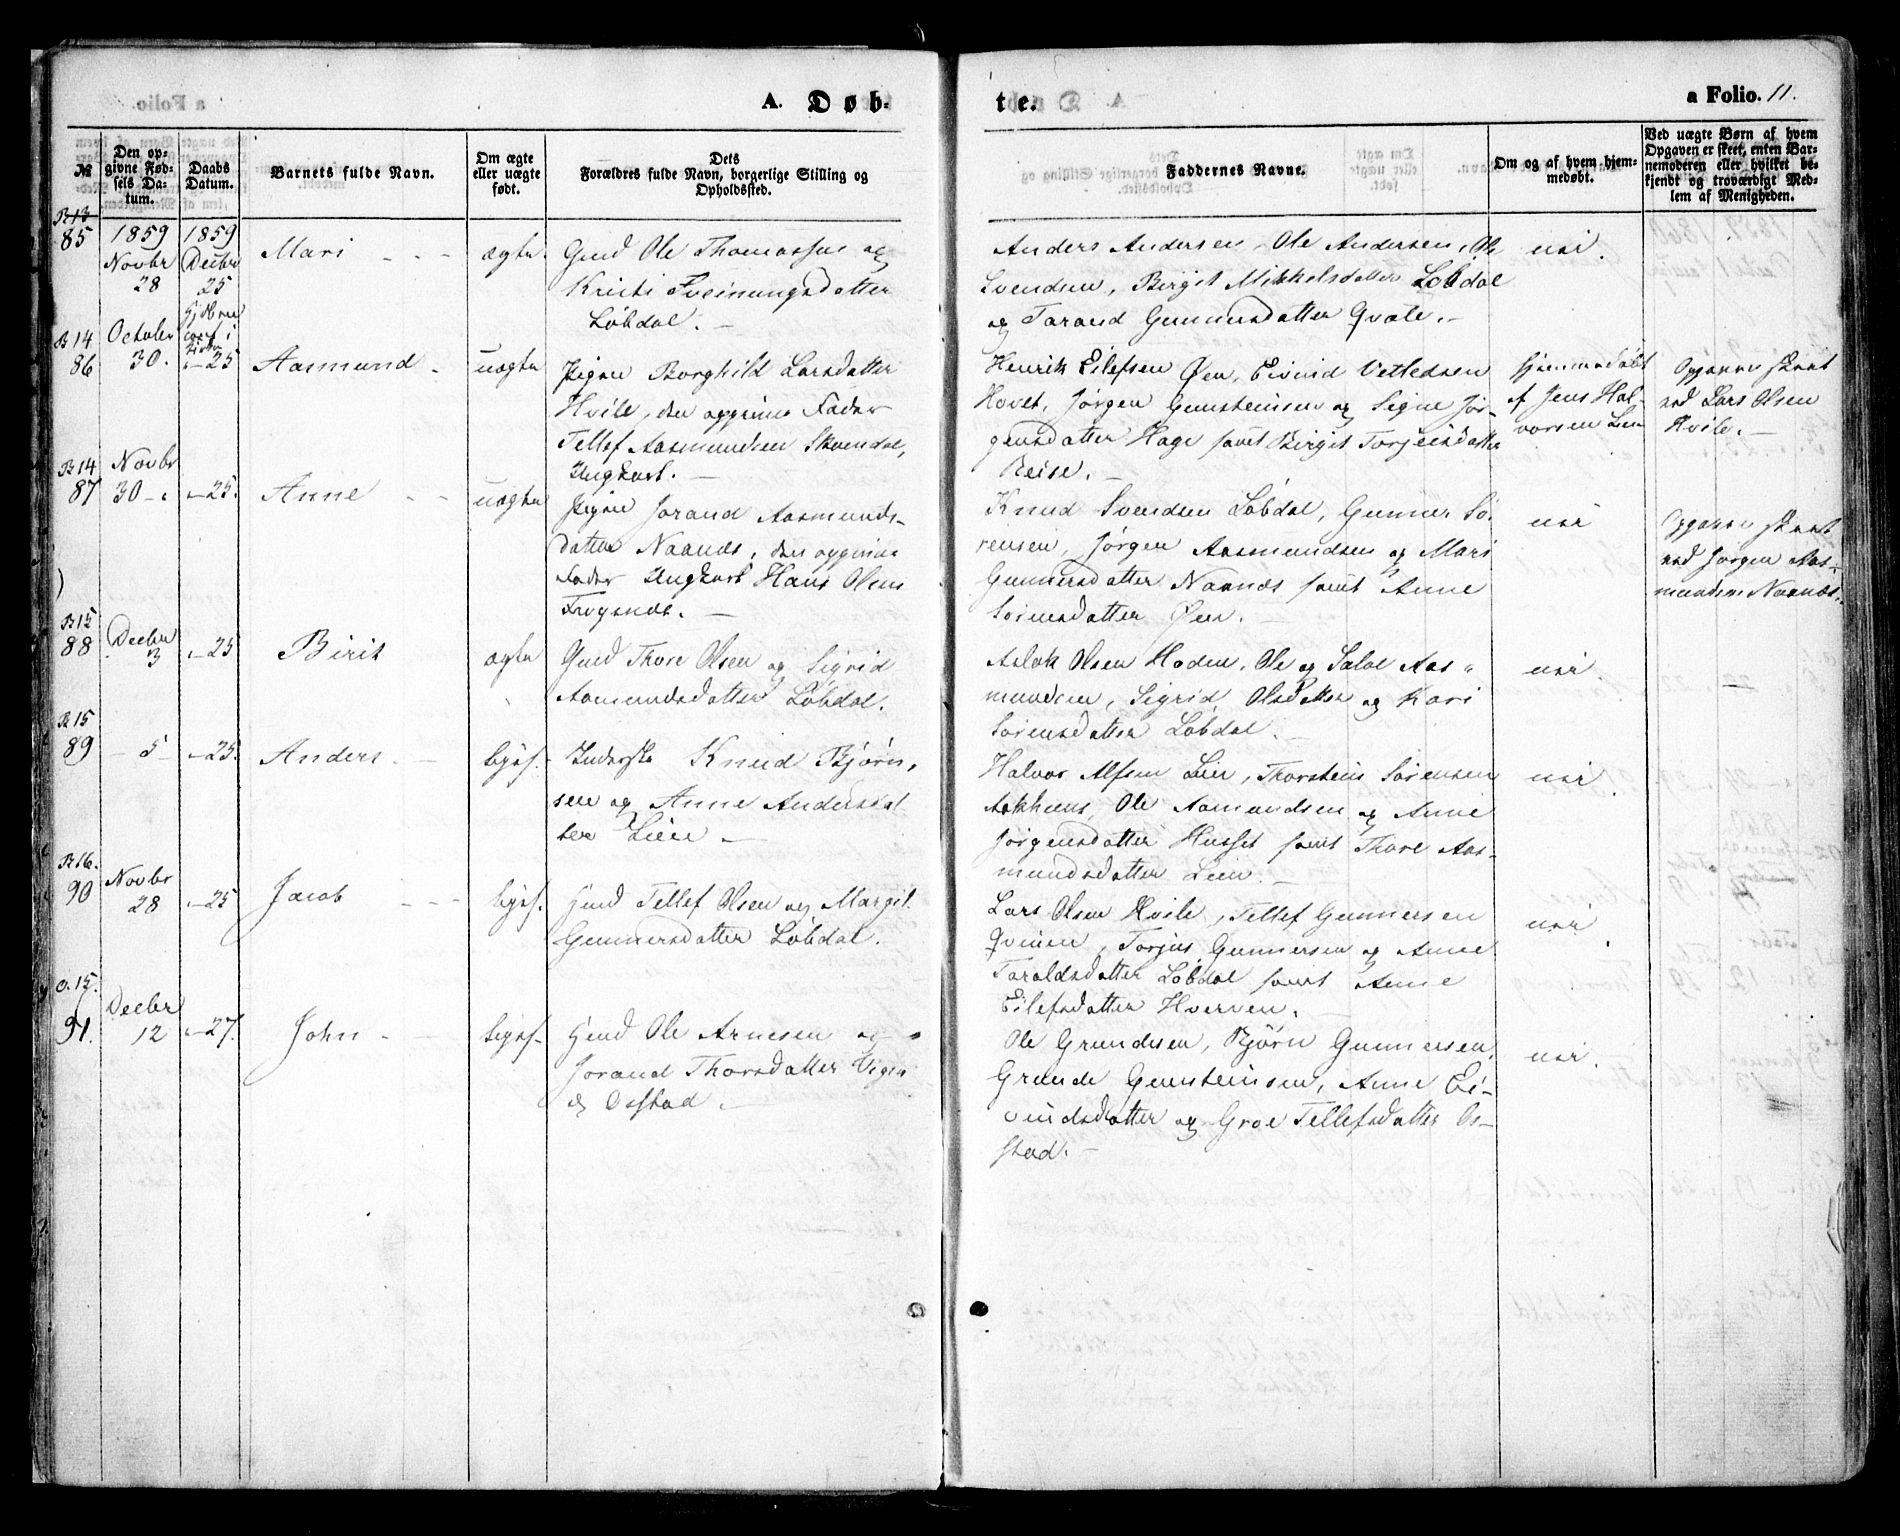 A. Døb-
te.
a Folio. 11.
№
Den op-
givne Fød-
sels Da-
tum.
Daabs
Datum.
Barnets fulde Navn.
Om ægte
eller uægte
født.
Dets
Forældres fulde Navn, borgerlige Stilling og
Opholdssted.
Faddernes Navne.
Om og af hvem hjem-
medøbt.
Ved uægte Børn af hvem
Opgaven er skeet, enten Bar-
nemoderen eller hvilket be-
kjendt og troværdigt Med-
lem af Menigheden.
B 13
85
1859
Novbr
28
1859
Decbr
25
Mari
ægte
Gmd Ole Thomassen og
Kristi Sveinungsdatter
Løbdal. -
Anders Andersen, Ole Andersen, Ole
Svendsen, Birgit Mikkelsdatter Løbdal
og Torand Gunnersdatter Qvale. -
nei.
B 14
86
October
30.
- 25
Aasmund
uægte
Pigen Borghild Larsdatter
Hvile, den opgivne Fader
Tellef Aasmundsen Skvendal,
Ungkarl. -
Henrik Eilefsen Øen, Eivind Vetledsen
Hovet, Jørgen Gunsteinsen og Signe Jør-
gensdatter Hage samt Birgit Torjeisdatter
Reise. -
Hjemmedøbt
af Jens Hal-
vorsen Lien
Opgaven skeet
ved Lars Olsen
Hvile. -
B 14
87
Novbr
30 -
- 25.
Anne
uægte
Pigen Jorand Aasmunds-
datter Naanes, den opgivne
Fader Ungkarl Hans Olsen
Frøysnes. -
Knud Svendsen Løbdal, Gunner Sø-
rensen, Jørgen Aasmundsen og Mari
Gunnersdatter Naanes samt Anne
Sørensdatter Øen. -
nei
Opgaven skeet
ved Jørgen Aas-
mundsen Naanes.
B 15
88
Decbr
3
- 25
Birit
ægte
Gmd Thore Olsen og Sigrid
Aamundsdatter Løbdal.
Aslak Olsen Haden, Ole og Salve Aas-
mundsen, Sigrid Olsdatter og Kari
Sørensdatter Løbdal. -
nei.
B 15
89
- 5 -
- 25.
Anders
liges. -
Inderste Knud Bjørn-
sen og Anne Andersdat-
ter Lien -
Halvor Alfsen Lien, Thorstein Sørensen
Aakhuus, Ole Aamundsen og Anne
Jørgensdatter Husset samt Thore Aas-
mundsdatter Lien. -
nei.
B 16.
90
Novbr
28
- 25
Jacob
ligs.
Gmd Tellef Olsen og Margit
Gunnersdatter Løbdal.
Lars Olsen Hvile, Tellef Gunnersen
Qvinen, Torjus Gunnersen og Anne
Taraldsdatter Løbdal samt Anne
Eilefsdatter Hverven. -
nei.
O. 15.
91.
Decbr
12
- 27.
John
ligs. -
Gmd Ole Arnesen og
Jorand Thorsdatter Vigen
Ostad. -
Ole Grundesen, Bjørn Gunnersen,
Grunde Gunsteinsen, Anne Ei-
vindsdatter og Groe Tellefsdatter Os-
stad. -
nei.